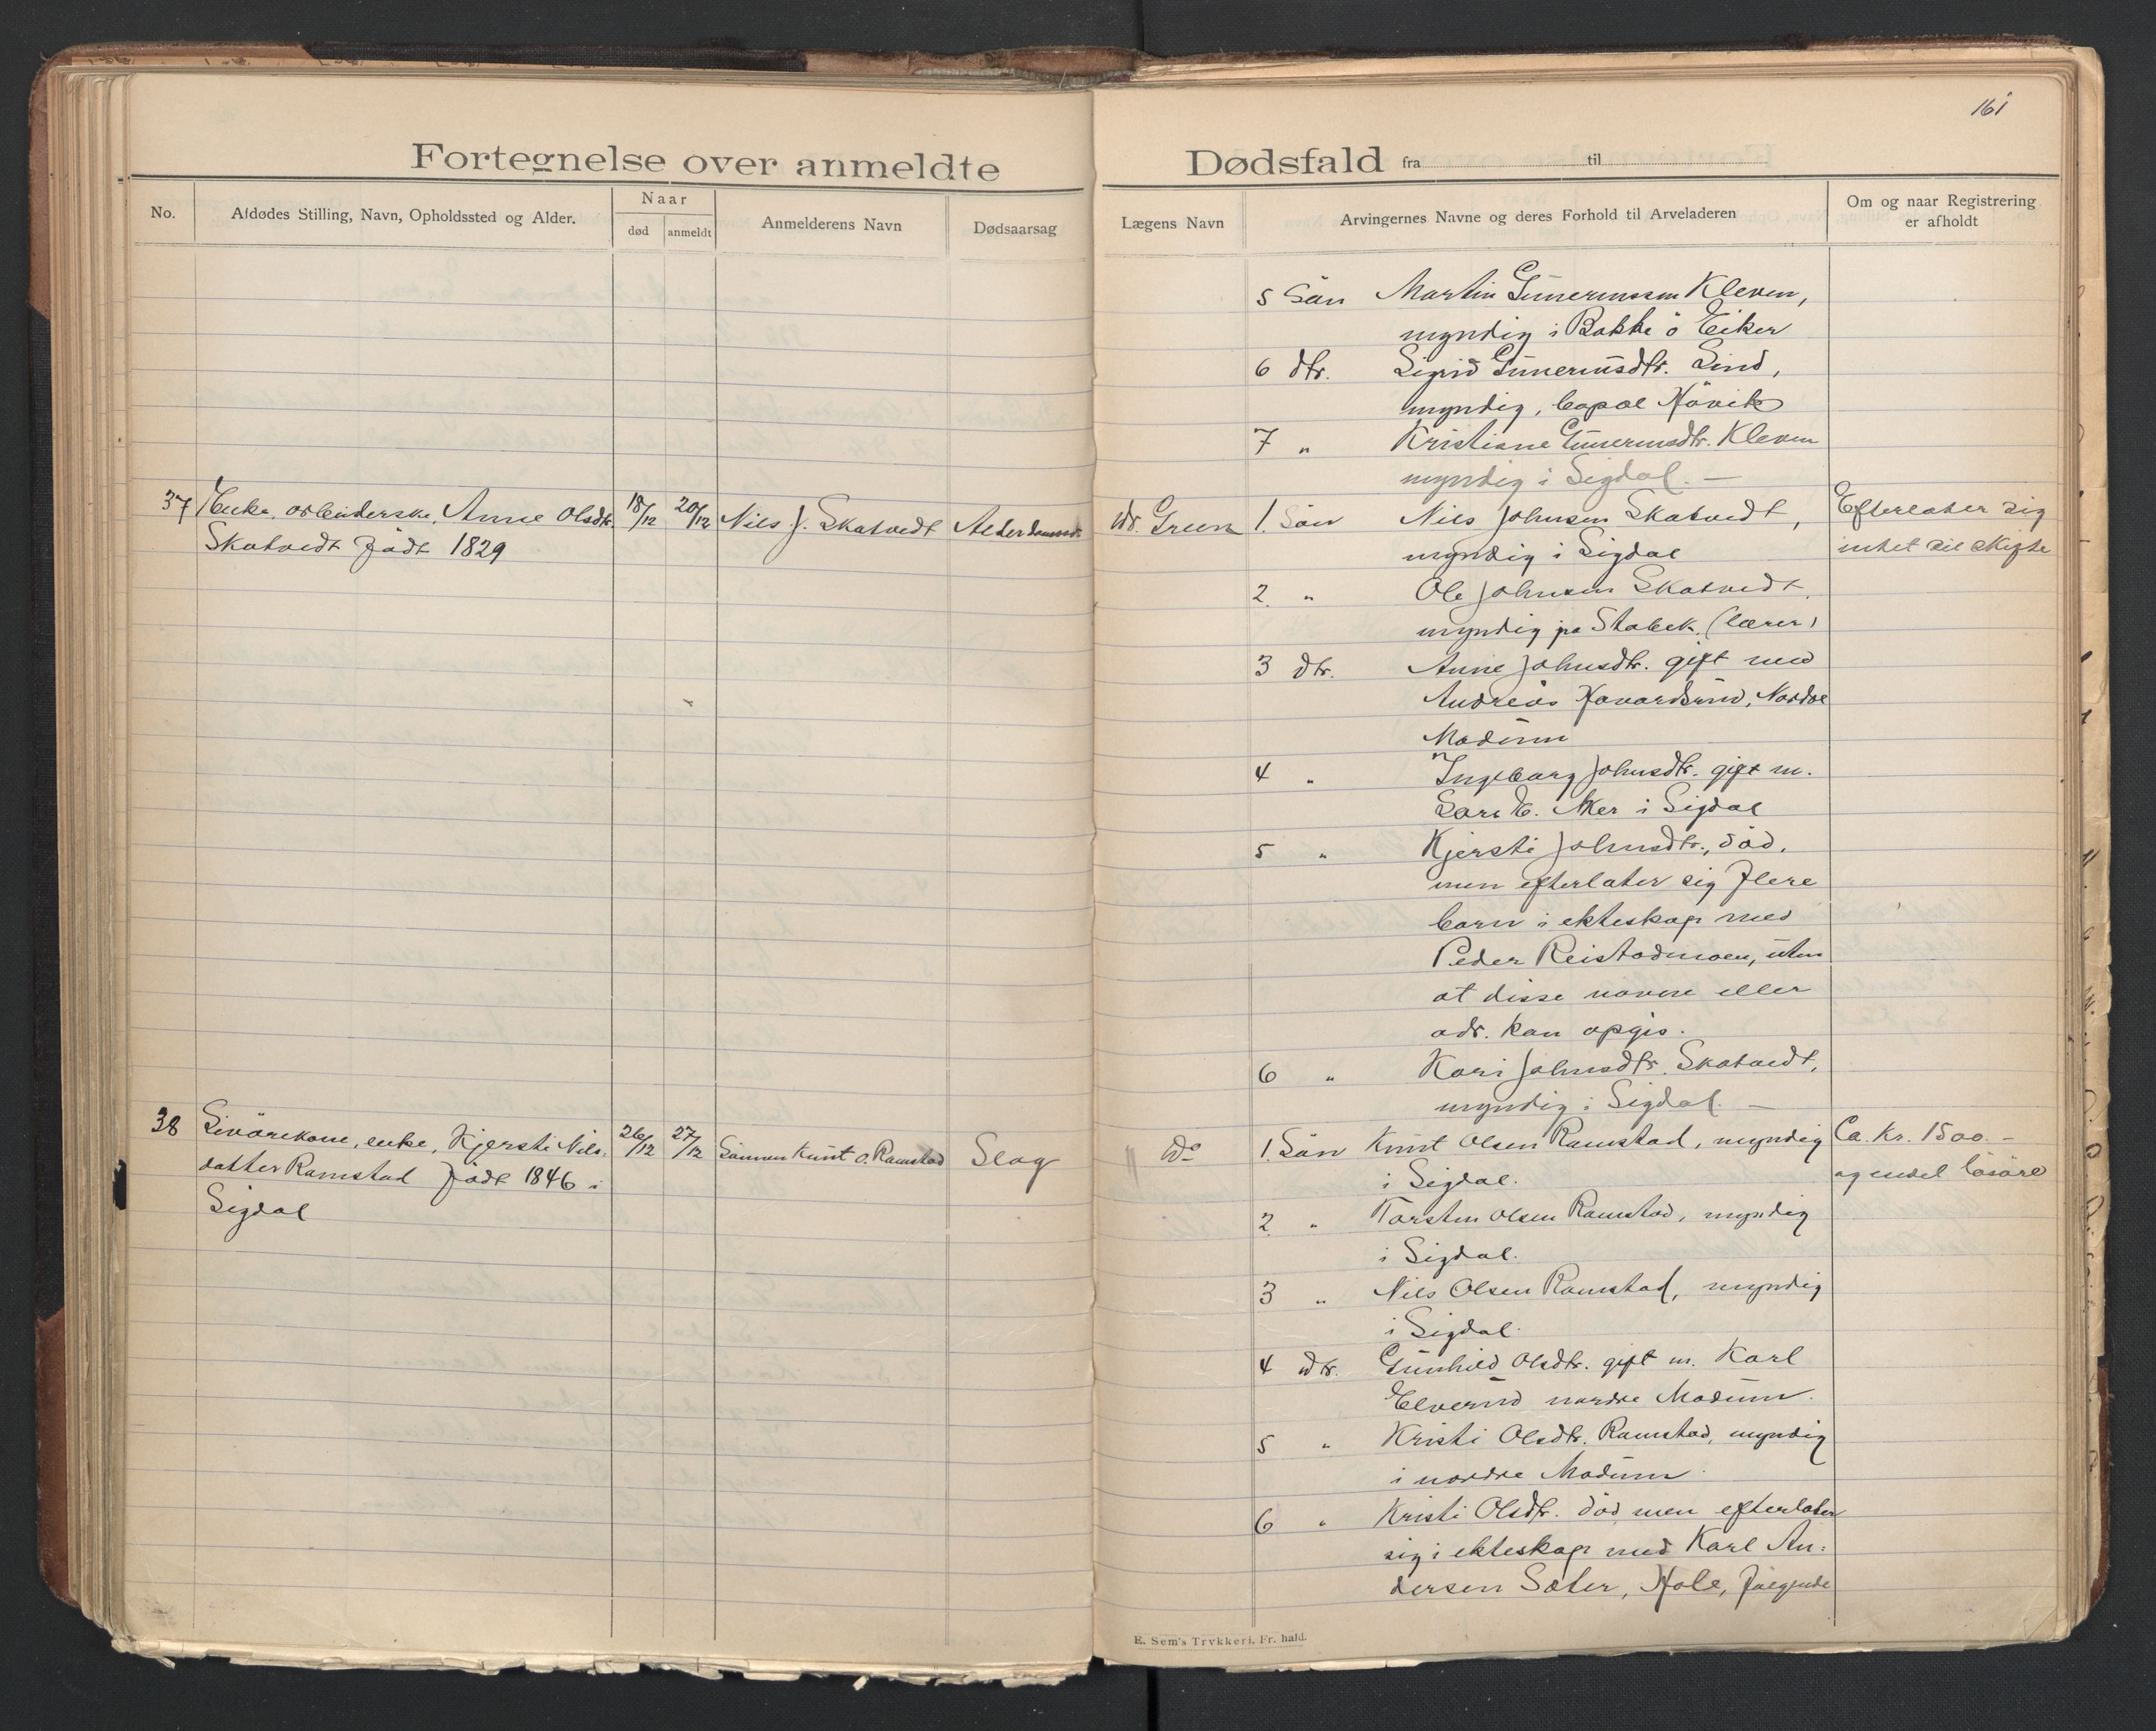 161
Fortegnelse over anmeldte Dødsfald fra til
No.
Afdødes Stilling, Navn, Opholdssted og Alder.
Naar
død anmeldt
Anmelderens Navn
Dødsaarsag
Lægens Navn
Arvingernes Navne og deres Forhold til Arveladeren
Om og naar Registrering
er afholdt
5 Sön Martin Guneriussen Kleven,
myndig i Bakke ö Eiker
6 dtr. Sigrid Guneriusdtr. Lind,
myndig, Høvik
7 " Kristiane Guneriusdtr. Kleven
myndig i Sigdal. —
37 Enke, arbeiderske, Anne Olsdtr. 18/12 20/12 Nils J. Skatvedt Alderdomssv. Dr. Green 1. Sön Nils Johnsen Skatvedt, Efterlater sig
Skatvedt född 1829 myndig i Sigdal intet til skifte
2. " Ole Johnsen Skatvedt,
myndig pa Stabek. (lærer)
3 dtr. Anne Johnsdtr. gift med
Andreas Havardsrud, Nordre
Modum
4 " Ingeborg Johnsdtr. gift m.
Lars E. Aker i Sigdal
5 " Kjersti Johnsdtr., död,
men efterlater sig flere
barn i ekteskap med
Peder Reistadmoen, uten
at disse navne eller
adr. kan opgis.
6 " Kari Johnsdtr. Skatvedt,
myndig i Sigdal. —
38 Livörekone, enke, Kjersti Nils- 26/12 27/12 Sönnen Knut O. Ramstad Slag Do 1. Sön Knut Olsen Ramstad, myndig Ca. Kr. 1500. -
datter Ramstad född 1846 i i Sigdal. og endel lösöre
Sigdal
2. " Torsten Olsen Ramstad, myndig
i Sigdal.
3 " Nils Olsen Ramstad, myndig
i Sigdal.
4 dtr. Gunhild Olsdtr. gift m. Karl
Elverud nordre Modum.
5 " Kristi Olsdtr. Ramstad, myndig
i nordre Modum.
6 " Kristi Olsdtr. död, men efterlater
sig i ekteskap med Karl An-
dersen Sæter, Hole, fölgende
E. Sem's Trykkeri, Fr. hald.